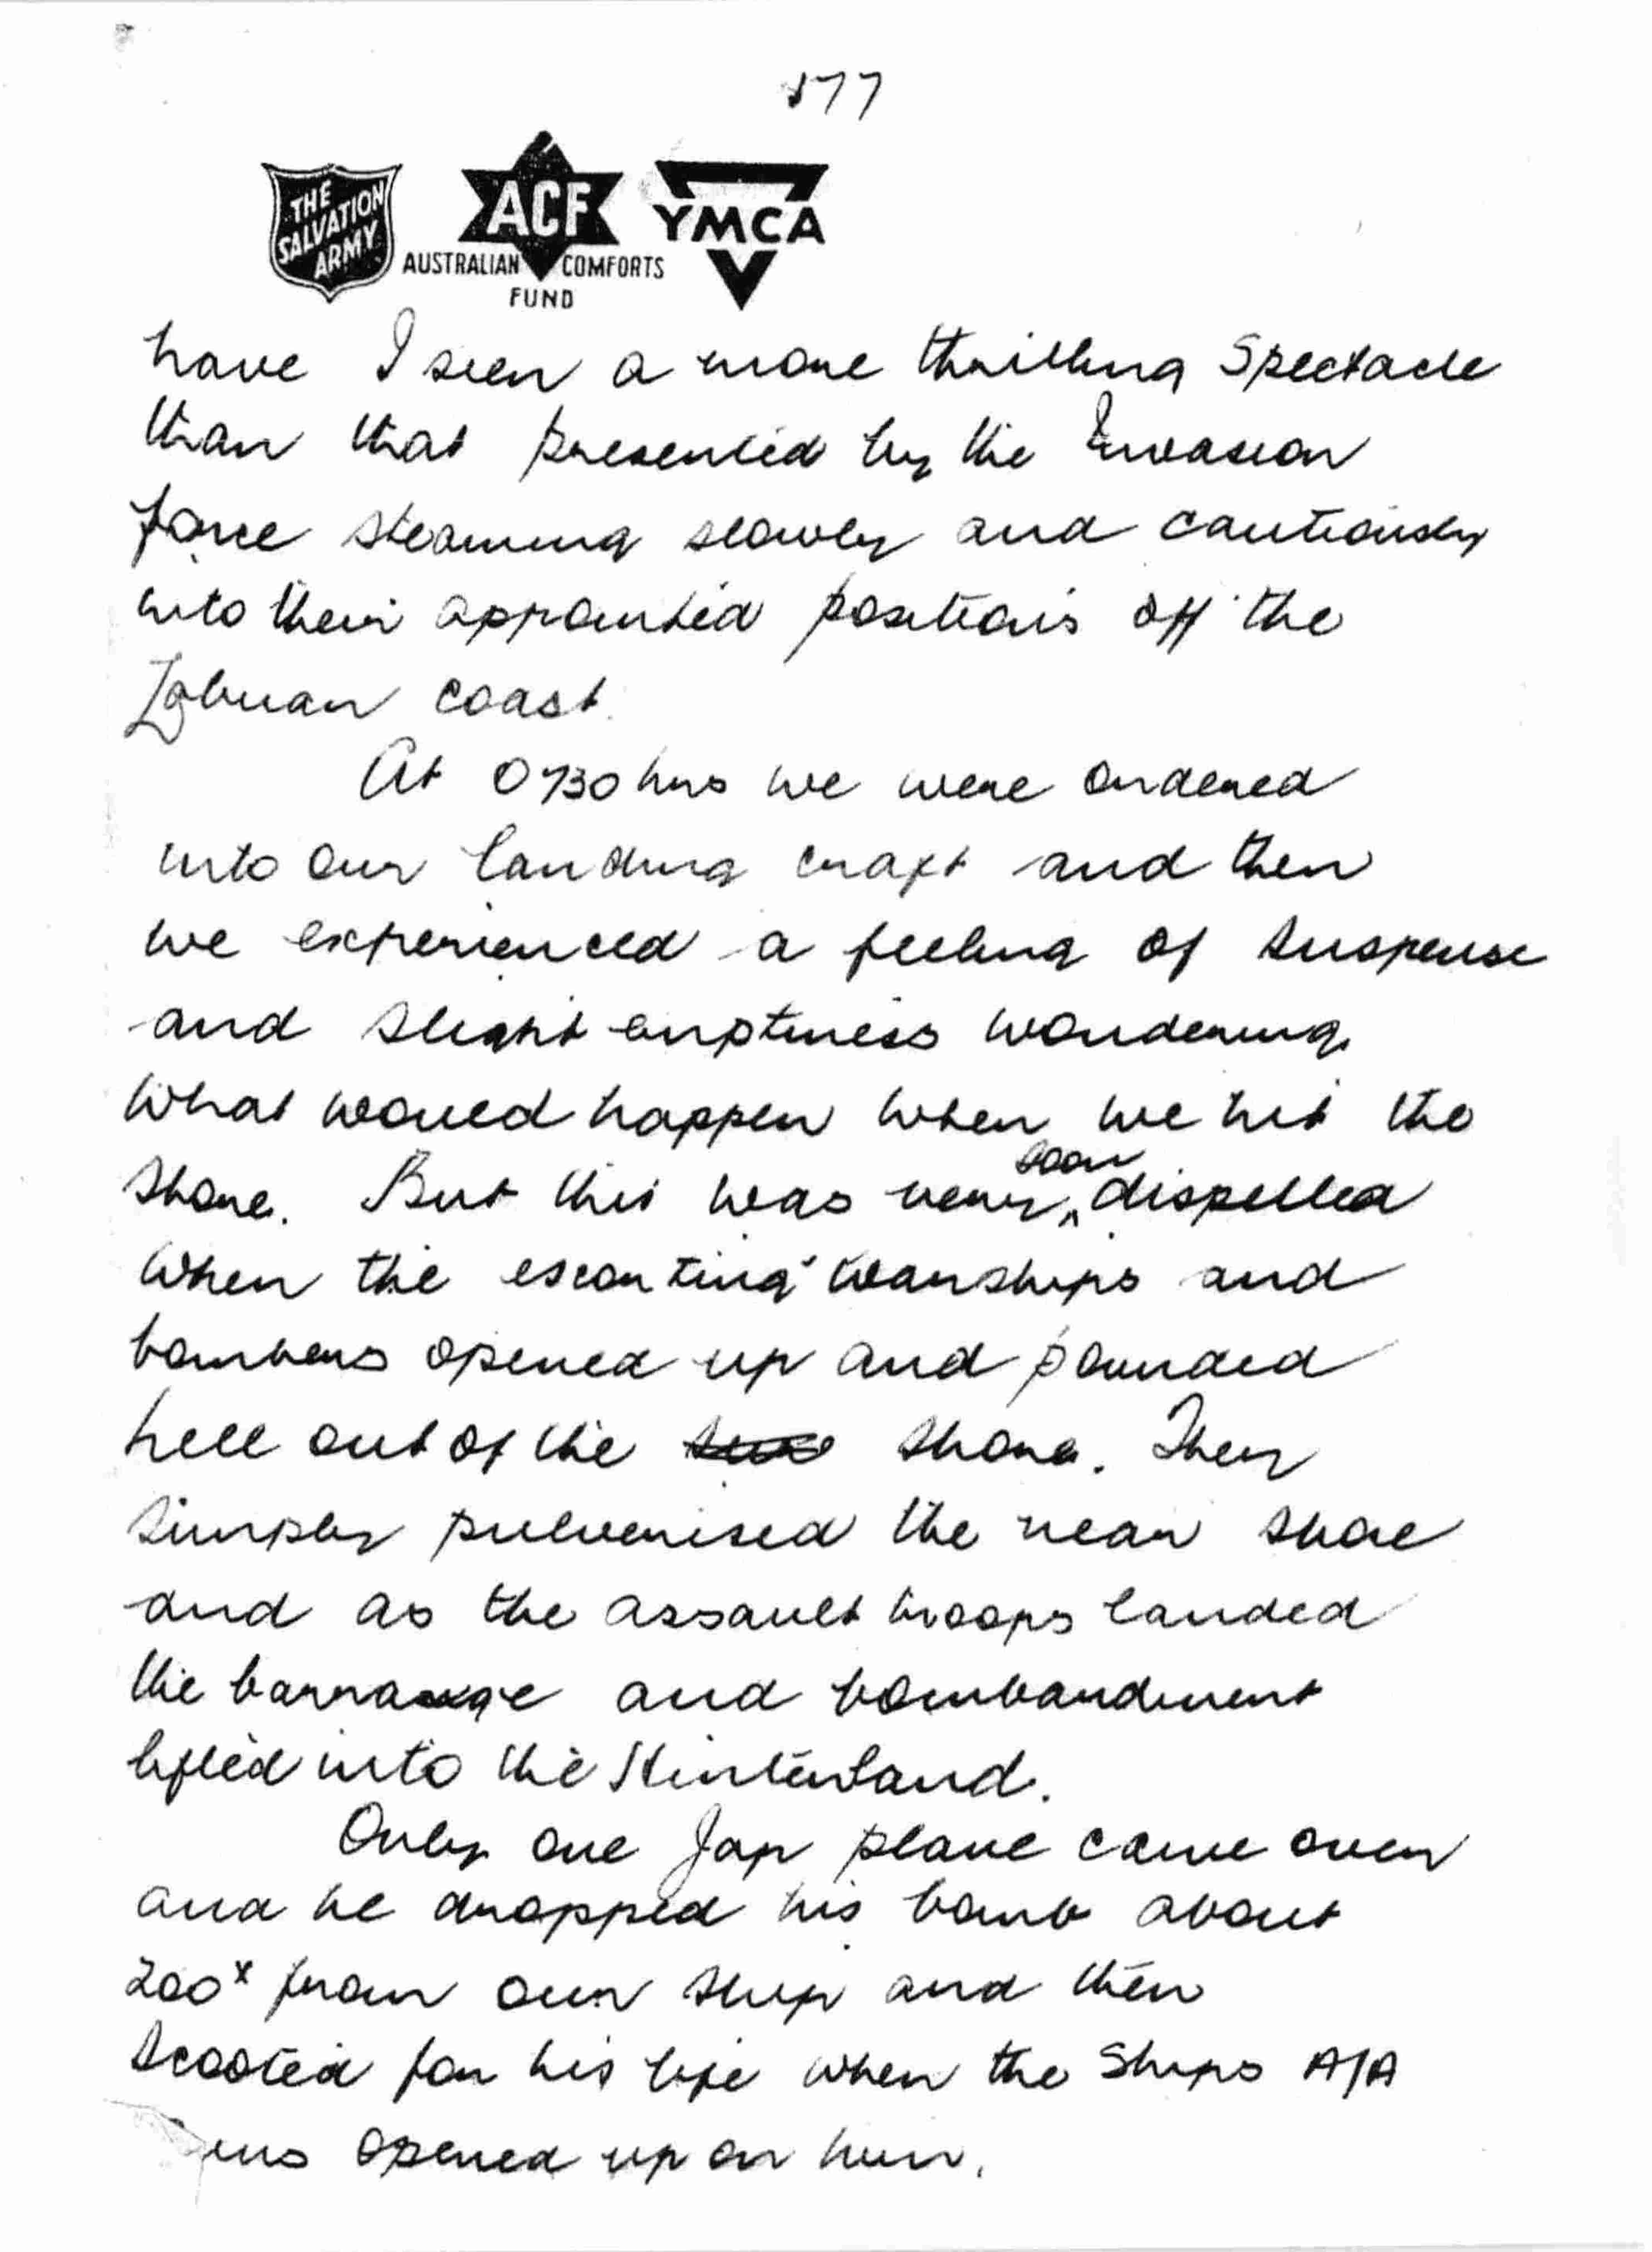 177
THE SALVATION ARMY
ACF
AUSTRALIAN COMFORTS FUND
YMCA
have I seen a more thrilling Spectacle
than that presented by the Invasion
force steaming slowly and cautiously
into their appointed positions off the
Labuan coast.
At 0730 hrs we were ordered
into our landing craft and then
we experienced a feeling of suspense
and slight emptiness wondering
what would happen when we hit the
shore. But this was very soon dispelled
when the escorting warships and
bombers opened up and pounded
hell out of the shore. They
simply pulverised the near shore
and as the assault troops landed
the barrage and bombardment
lifted into the Hinterland.
Only one Jap plane came over
and he dropped his bomb about
200x from our ship and then
scooted for his life when the Ships A/A
opened up on him.